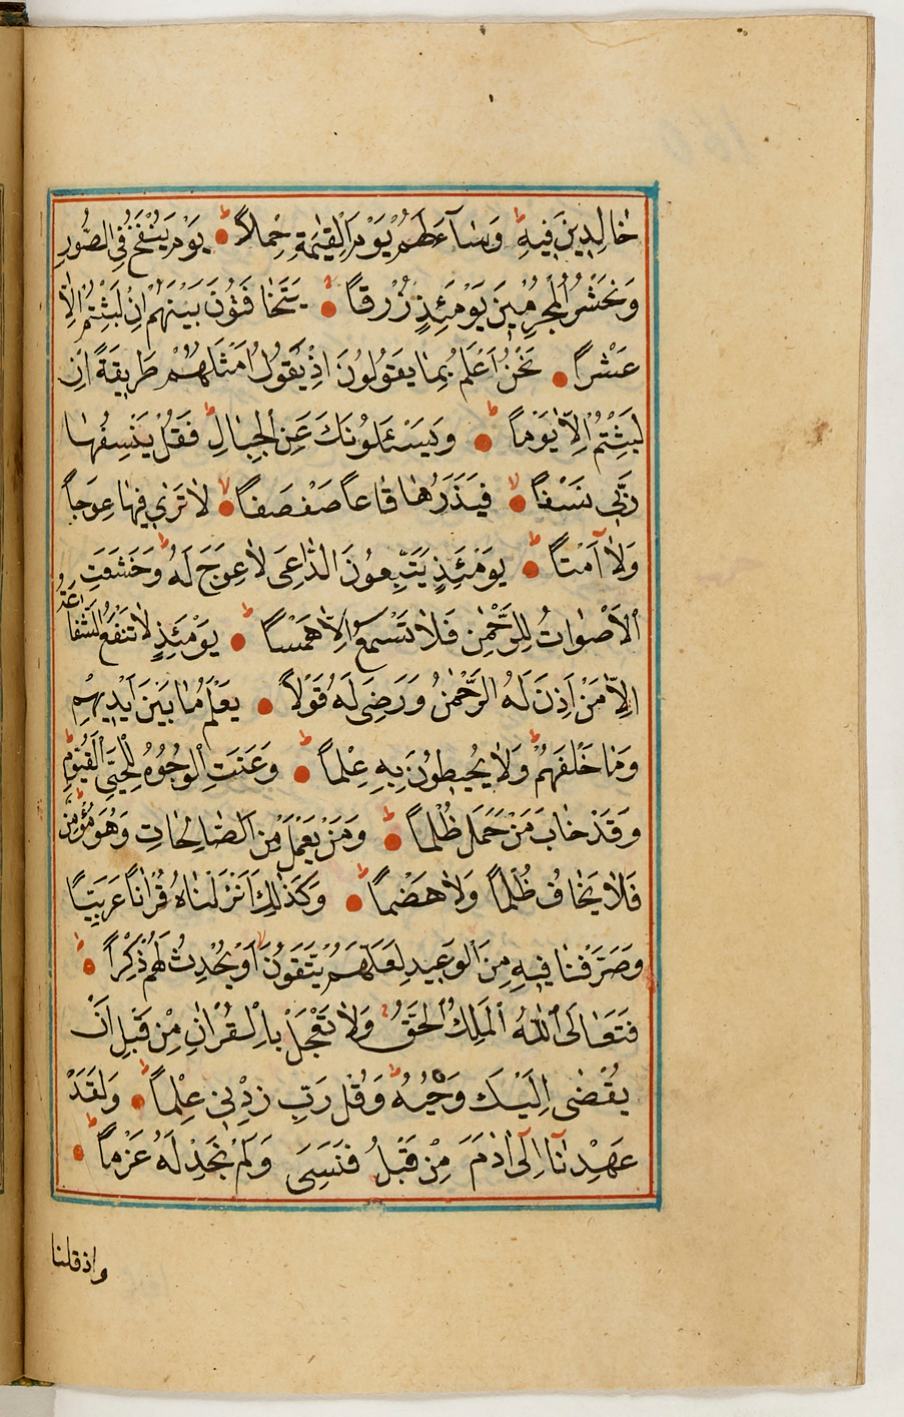 خَالِدِينَ فِيهِ ط وَسَاءَ لَهُمْ يَوْمَ الْقِيٰمَةِ حِمْلاً ط يَوْمَ يُنْفَخُ فِى الصُّورِ
وَنَحْشُرُ الْمُجْرِمِينَ يَوْمَئِذٍ زُرْقاً يَتَخَافَتُونَ بَيْنَهُمْ اِنْ لَبِثْتُمْ اِلَّا
عَشْراً نَحْنُ اَعْلَمُ بِمَا يَقُولُونَ اِذْ يَقُولُ اَمْثَلُهُمْ طَرِيقَةً اِنْ
لَبِثْتُمْ اِلَّا يَوْماً ط وَيَسْئَلُونَكَ عَنِ الْجِبَالِ ط فَقُلْ يَنْسِفُهَا
رَبِّى نَسْفاً لا فَيَذَرُهَا قَاعاً صَفْصَفاً لا لَا تَرٰى فِيهَا عِوَجاً
وَلَا اَمْتاً ط يَوْمَئِذٍ يَتَّبِعُونَ الدَّاعِىَ لَا عِوَجَ لَهُ ط وَخَشَعَتِ
الْاَصْوَاتُ لِلرَّحْمٰنِ فَلَا تَسْمَعُ اِلَّا هَمْساً ط يَوْمَئِذٍ لَا تَنْفَعُ الشَّفَاعَةُ
اِلَّا مَنْ اَذِنَ لَهُ الرَّحْمٰنُ وَرَضِىَ لَهُ قَوْلاً يَعْلَمُ مَا بَيْنَ اَيْدِيهِمْ
وَمَا خَلْفَهُمْ ط وَلَا يُحِيطُونَ بِهِ عِلْماً ط وَعَنَتِ الْوُجُوهُ لِلْحَىِّ الْقَيُّومِ ط
وَقَدْ خَابَ مَنْ حَمَلَ ظُلْماً ط وَمَنْ يَعْمَلْ مِنَ الصَّالِحَاتِ وَهُوَ مُؤْمِنٌ
فَلَا يَخَافُ ظُلْماً وَلَا هَضْماً ط وَكَذٰلِكَ اَنْزَلْنَاهُ قُرْاٰناً عَرَبِيًّا
وَصَرَّفْنَا فِيهِ مِنَ الْوَعِيدِ لَعَلَّهُمْ يَتَّقُونَ اَوْ يُحْدِثُ لَهُمْ ذِكْراً
فَتَعَالَى اللّٰهُ الْمَلِكُ الْحَقُّ وَلَا تَعْجَلْ بِالْقُرْاٰنِ مِنْ قَبْلِ اَنْ
يُقْضٰى اِلَيْكَ وَحْيُهُ ط وَقُلْ رَبِّ زِدْنِى عِلْماً ط وَلَقَدْ
عَهِدْنَا اِلٰى اٰدَمَ مِنْ قَبْلُ فَنَسِىَ وَلَمْ نَجِدْ لَهُ عَزْماً ط
واذ قلنا